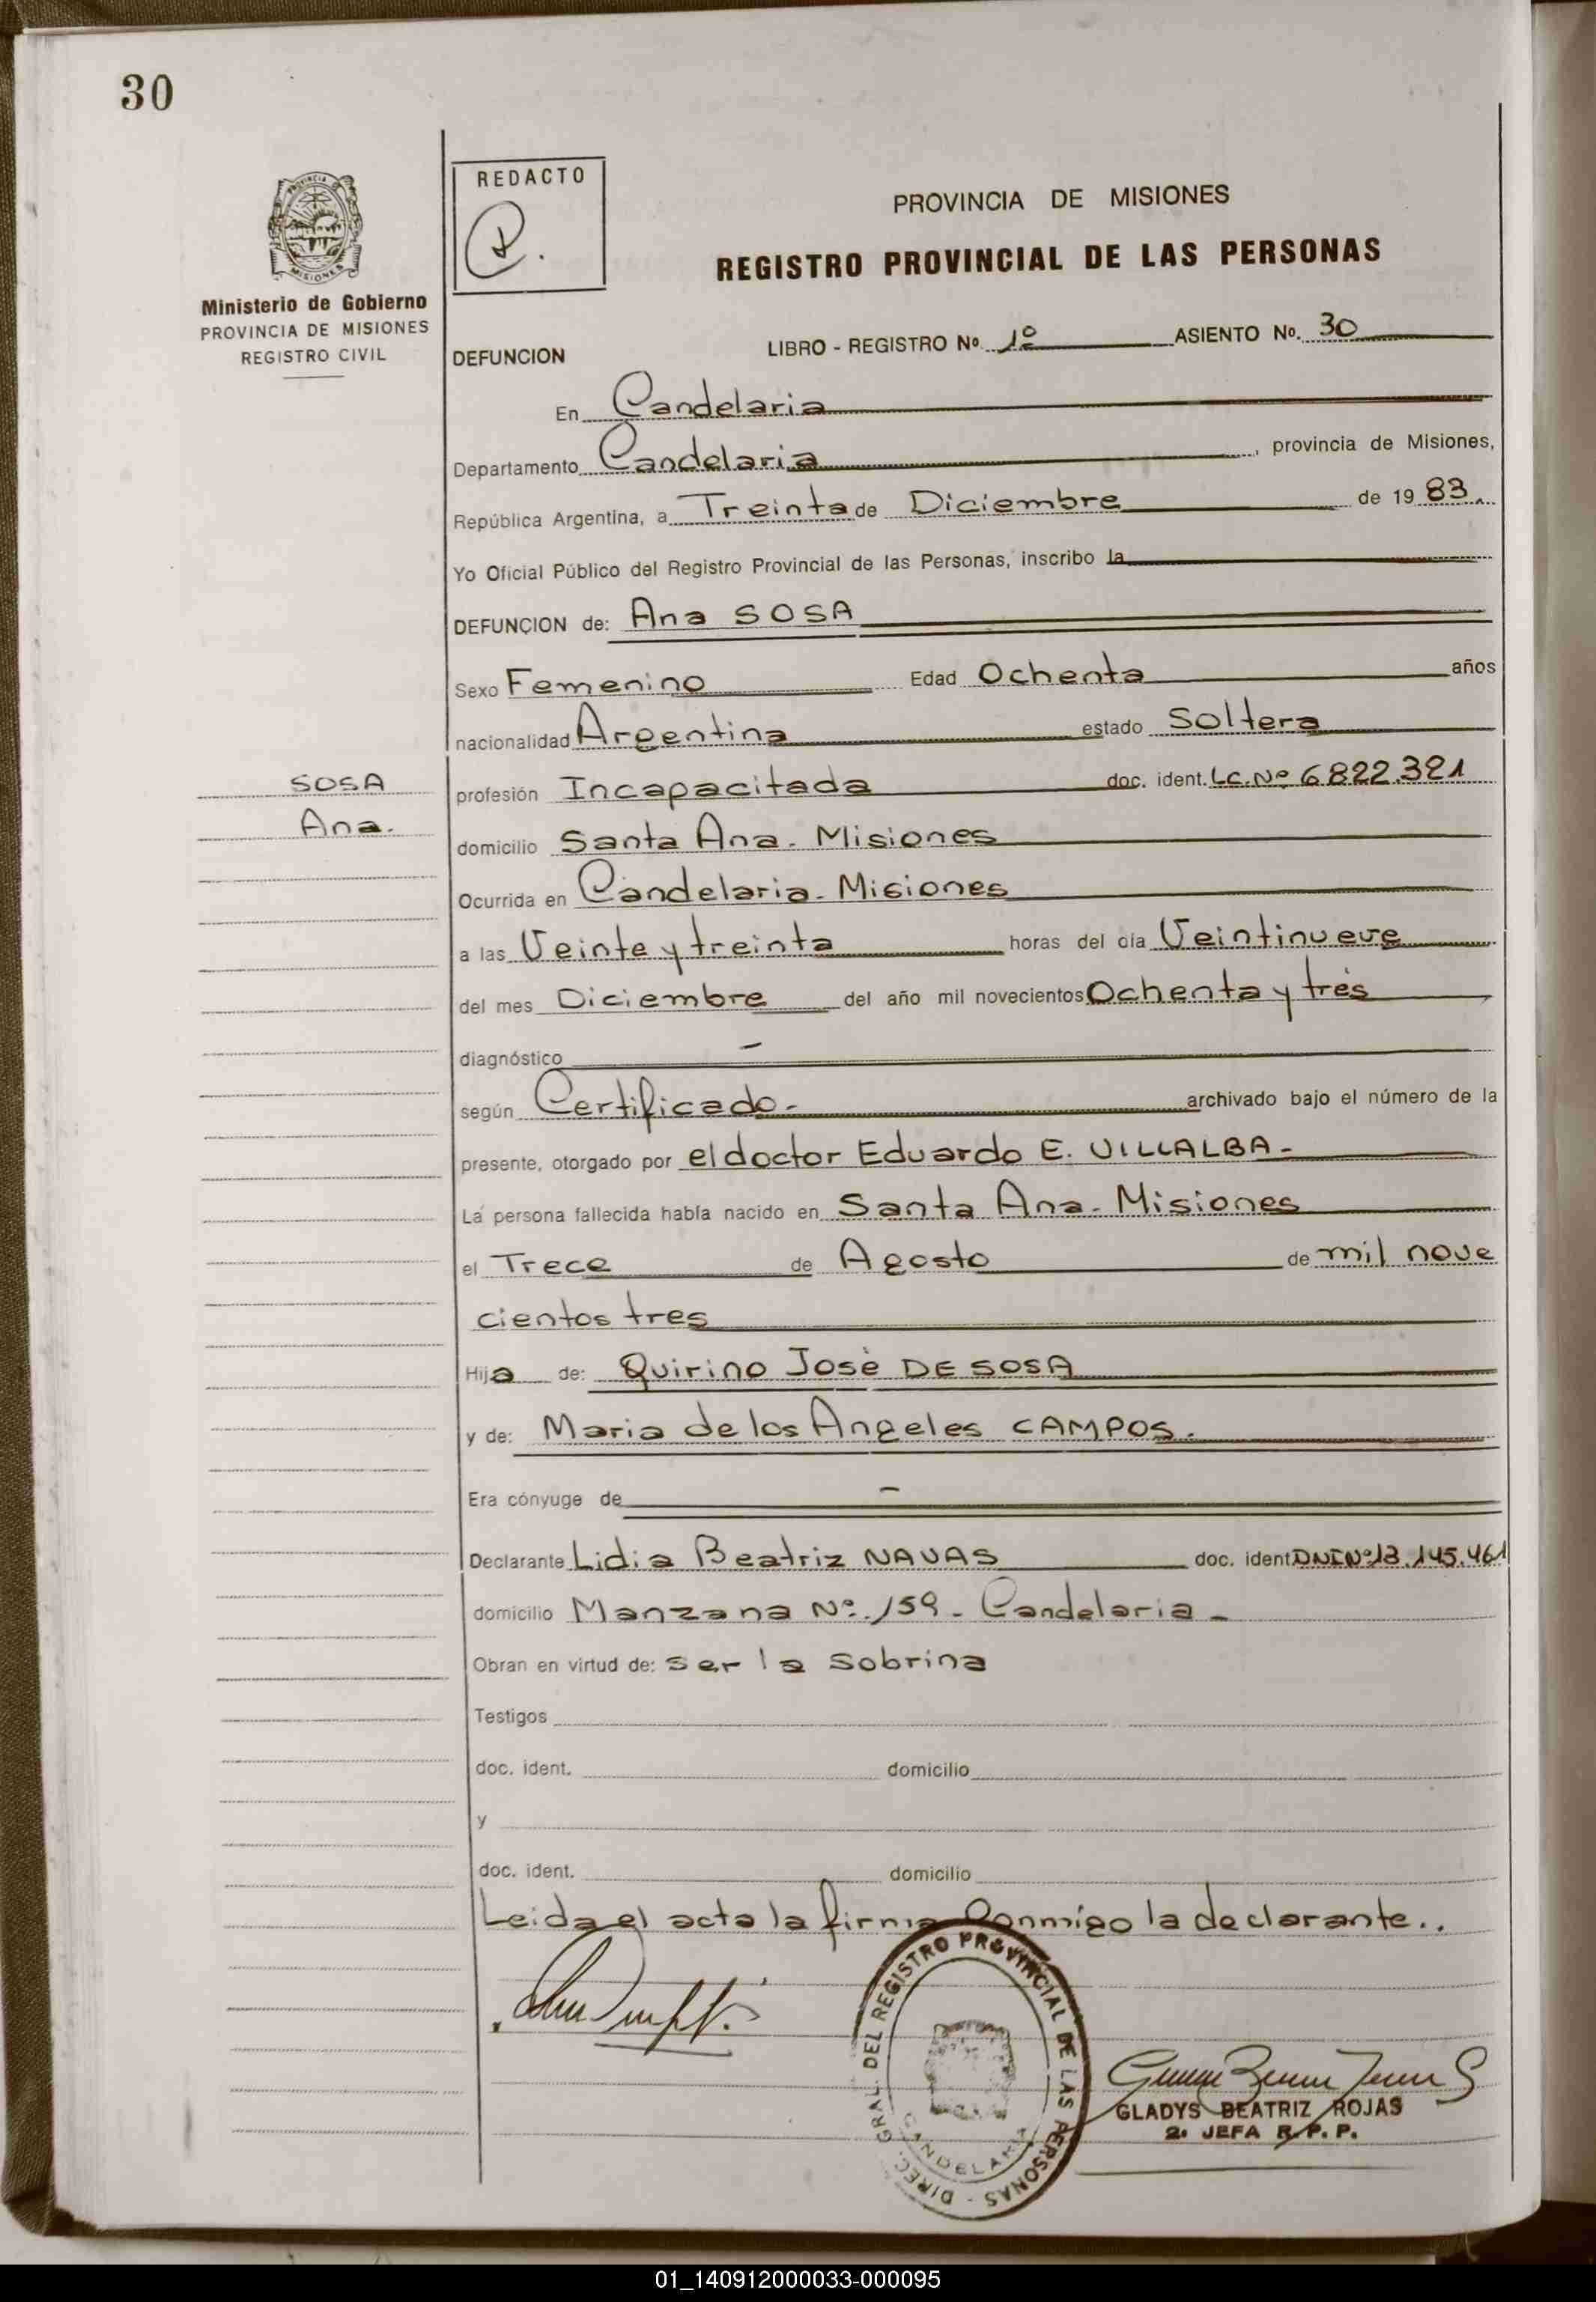 30
PROVINCIA
MISIONES
Ministerio de Gobierno
PROVINCIA DE MISIONES
REGISTRO CIVIL
REDACTO
PROVINCIA DE MISIONES
REGISTRO PROVINCIAL DE LAS PERSONAS
DEFUNCION LIBRO - REGISTRO Nº 1º ASIENTO Nº. 30
En Candelaria
Departamento Candelaria, provincia de Misiones,
República Argentina, a Treinta de Diciembre de 19 83.
Yo Oficial Público del Registro Provincial de las Personas, inscribo la
DEFUNCION de: Ana SOSA
Sexo Femenino Edad Ochenta años
nacionalidad Argentina estado Soltera
SOSA
Ana.
profesión Incapacitada doc. ident. L.C. Nº 6822.321
domicilio Santa Ana - Misiones
Ocurrida en Candelaria - Misiones
a las Veinte y treinta horas del día Veintinueve
del mes Diciembre del año mil novecientos Ochenta y tres
diagnóstico -
según Certificado - archivado bajo el número de la
presente, otorgado por el doctor Eduardo E. VILLALBA -
La persona fallecida había nacido en Santa Ana - Misiones
el Trece de Agosto de mil nove
cientos tres
Hija de: Quirino José DE SOSA
y de: Maria de los Angeles CAMPOS.
Era cónyuge de -
Declarante Lidia Beatriz NAVAS doc. ident. DNI Nº 13.145.461
domicilio Manzana Nº 159 - Candelaria -
Obran en virtud de: ser la sobrina
Testigos
doc. ident. domicilio
y
doc. ident. domicilio
Leida el acta la firma Conmigo la declarante..
DIREC. GRAL. DEL REGISTRO PROVINCIAL DE LAS PERSONAS -
CANDELARIA
GLADYS BEATRIZ ROJAS
2ª JEFA R.P.P.
01_140912000033-000095